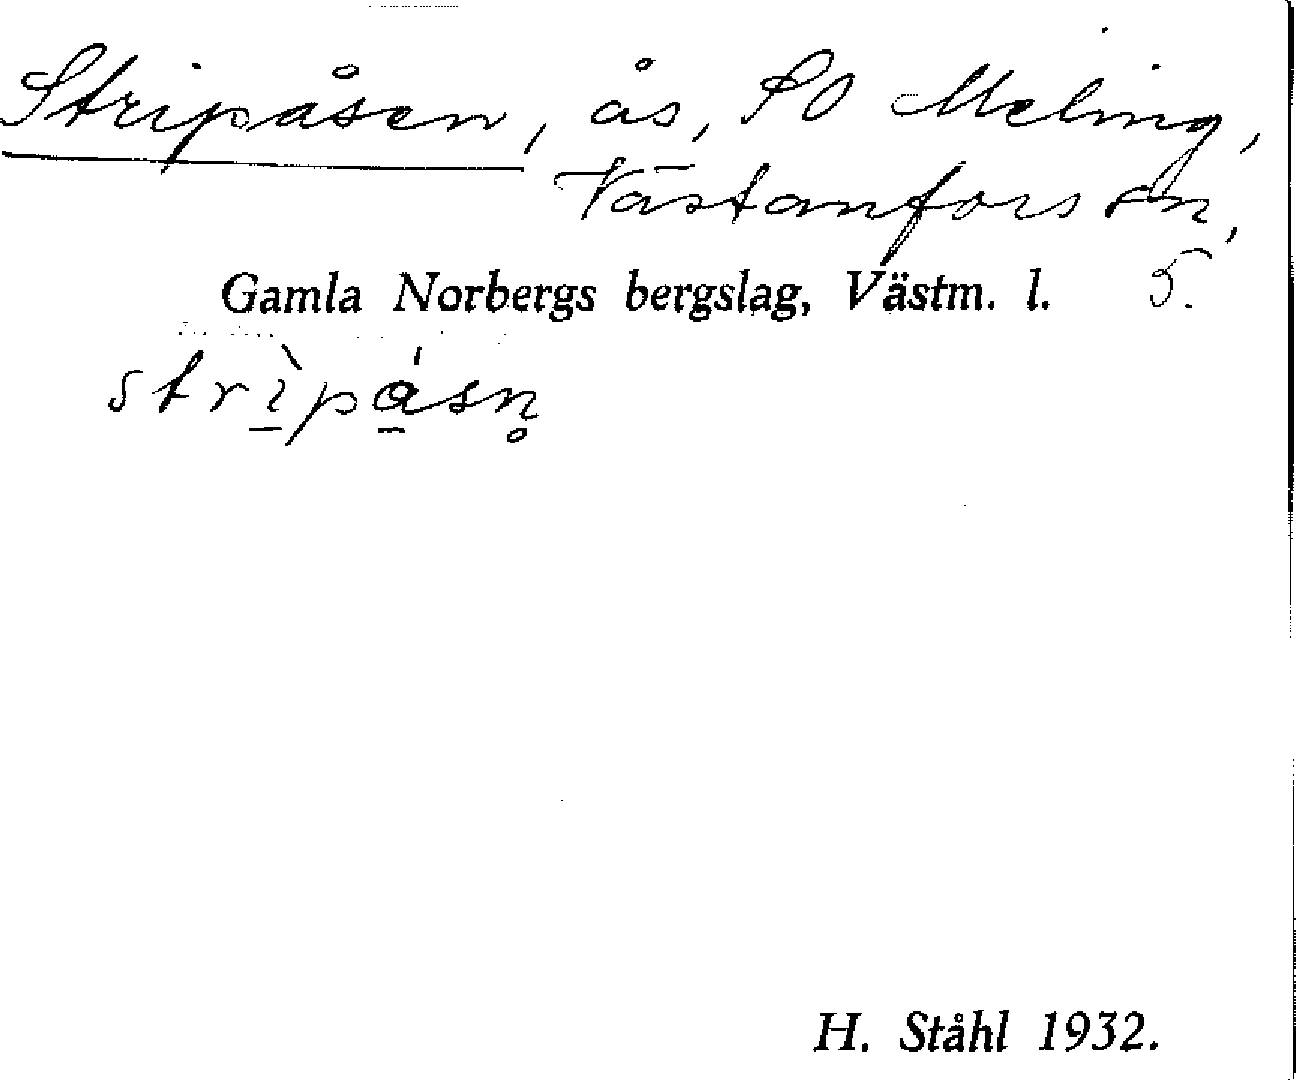 Stripåsen, ås, SO Meling,
Västanfors sn,
Gamla Norbergs bergslag, Västm. l. 5.
strìpásn̥
H. Ståhl 1932.